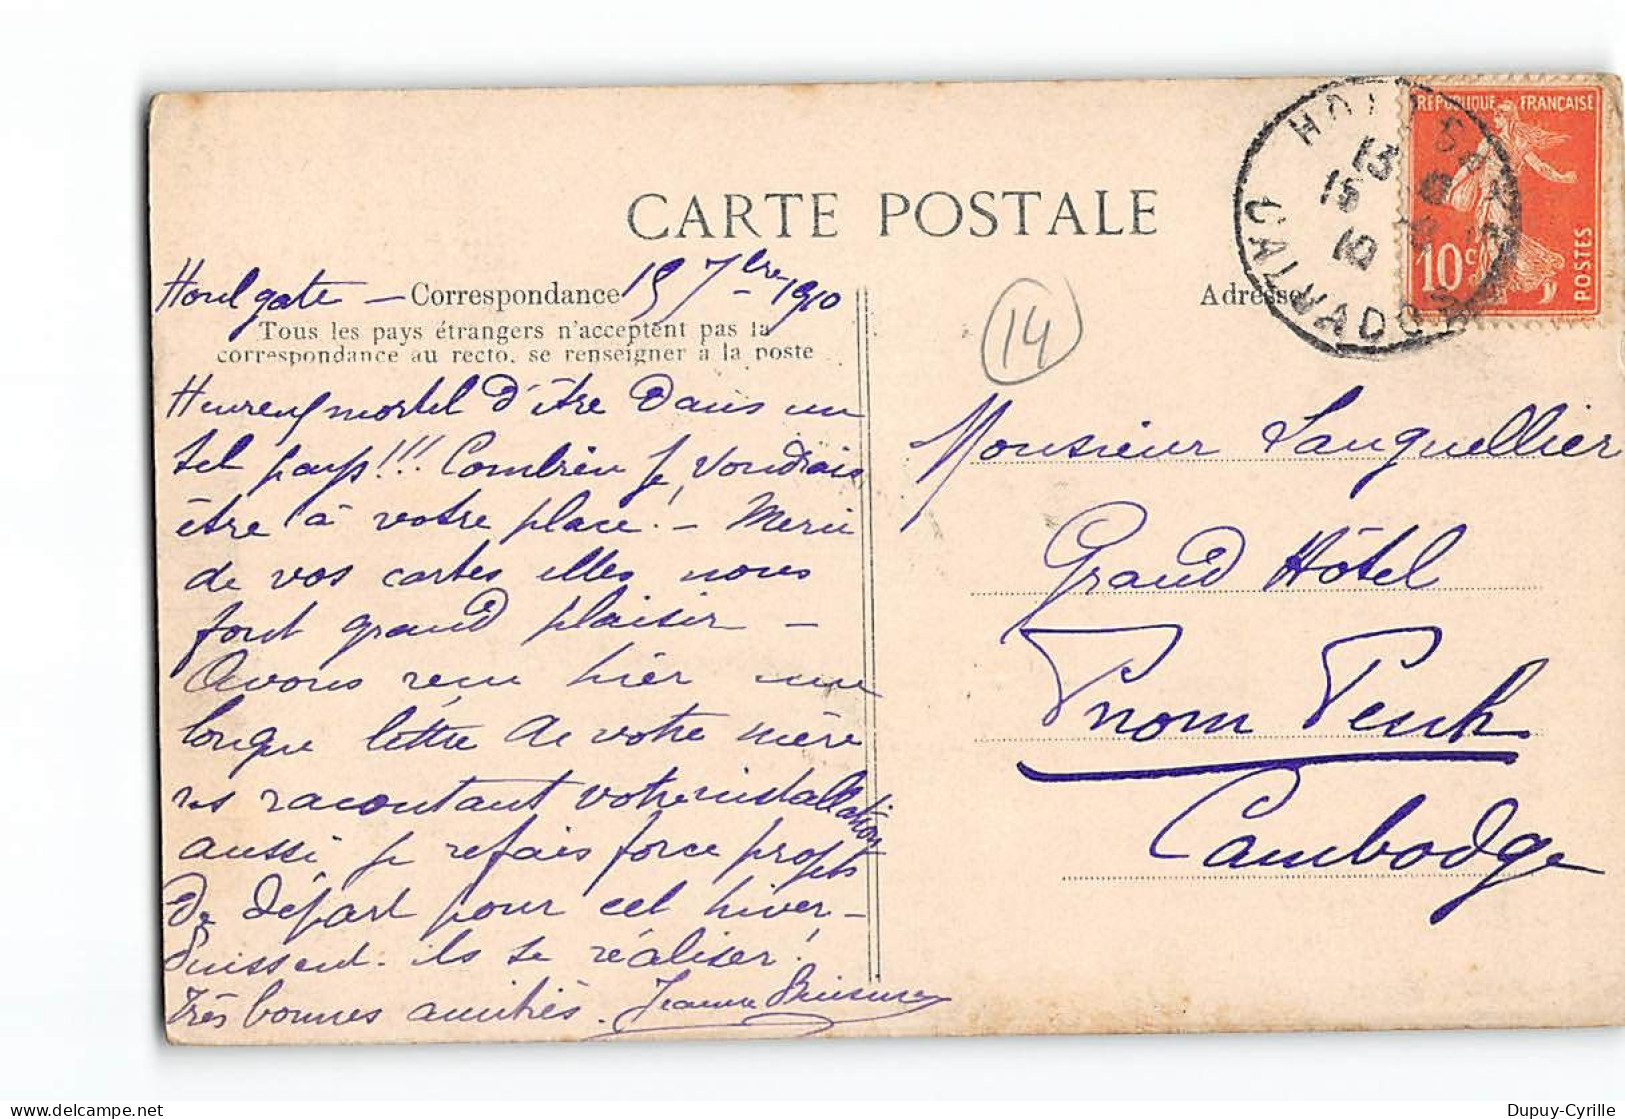 CARTE POSTALE
Houlgate – Correspondance 15 7bre 1910
Tous les pays étrangers n'acceptent pas la
correspondance au recto, se renseigner à la poste
Heureux mortel d'être dans un
tel pays!!! Combien je voudrais
être à votre place! – Merci
de vos cartes elles nous
font grand plaisir –
Avons reçu hier une
longue lettre de votre mère
ns racontant votre installation
aussi je refais force projets
de départ pour cet hiver –
Puissent-ils se réaliser!
Très bonnes amitiés. Jeanne
14
Adresse
HOULGATE
13
15 9
10
CALVADOS
RÉPUBLIQUE FRANÇAISE
10c
POSTES
Monsieur Lanquellier
Grand Hôtel
Pnom Penh
Cambodge
Dupuy-Cyrille